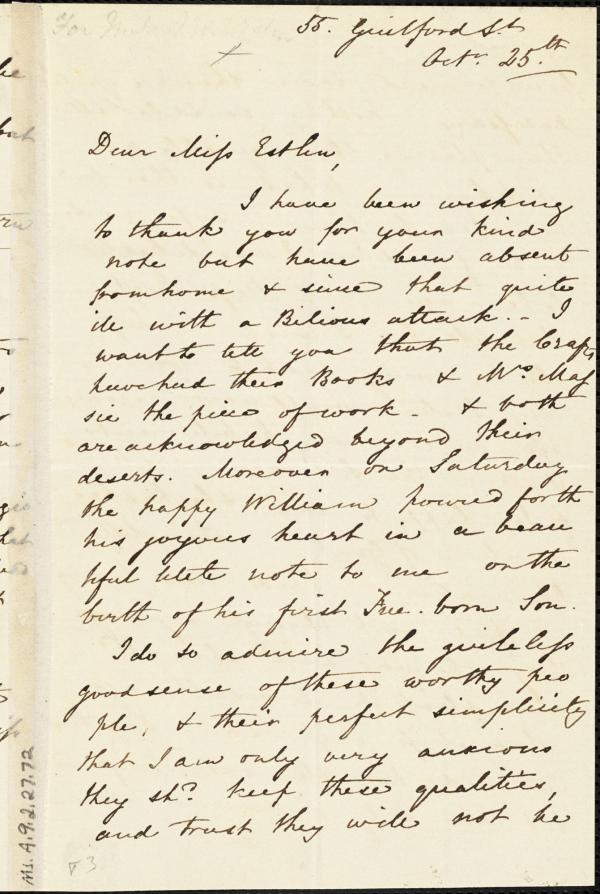 55. Guilford St
Octr. 25.th
Dear Miss Estlin,
I have been wishing
to thank you for your kind
note but have been absent
from home & since that quite
ill with a Bilious attack. - I
want to tell you that the Crafts
have had their Books & Mrs. Mas
sie the piece of work - & both
are acknowledged beyond their
deserts. Moreover on Saturday
the happy William poured forth
his joyous heart in a beau
tiful little note to me on the
birth of his first Free-born Son.
I do so admire the guileless
good sense of these worthy peo
ple, & their perfect simplicity
that I am only very anxious
they shd. keep these qualities,
and trust they will not be
Ms. A.9.2.27.72